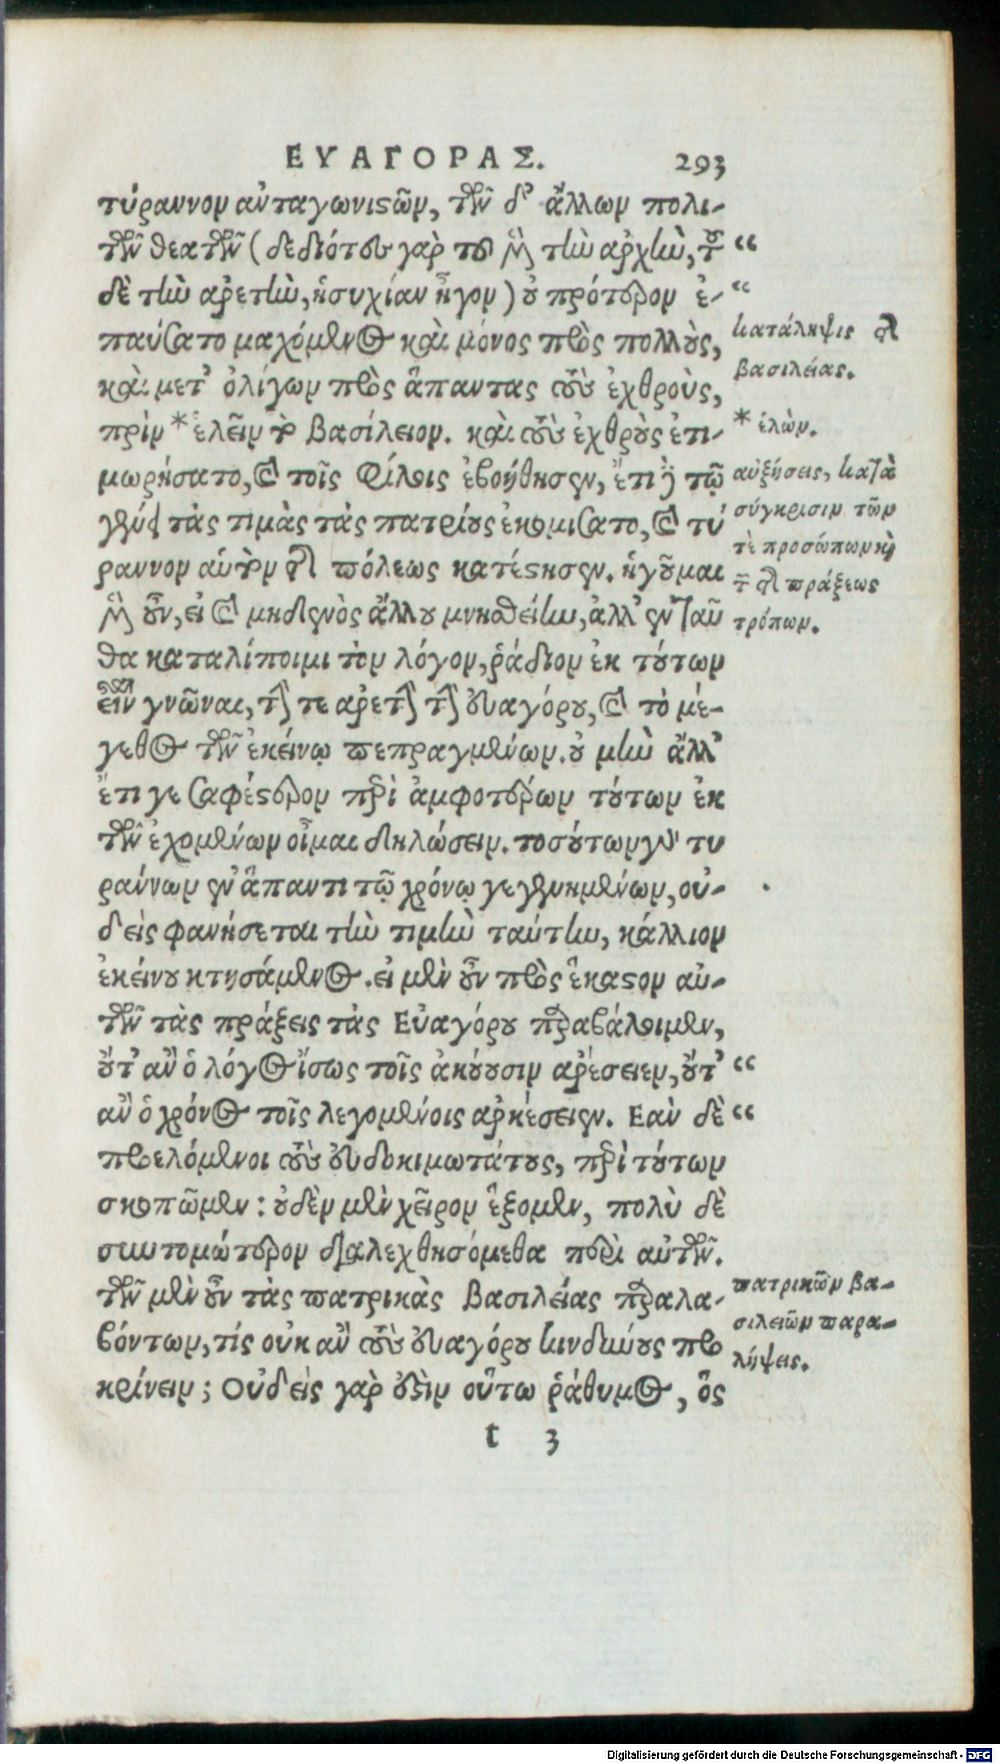 ΕΥΑΓΟΡΑΣ. 293
τύραννον ἀνταγωνιϛῶν, τῶν δ᾽ ἄλλων πολι-
τῶν θεατῶν (δεδιότες γὰρ τοῦ μὲν τὴν ἀρχὴν, τοῦ “
δὲ τὴν ἀρετὴν, ἡσυχίαν ἦγον) οὐ πρότερον ἐ- “
παύσατο μαχόμενος καὶ μόνος πρὸς πολλοὺς,
κατάληψις τῆς
βασιλείας.
καὶ μετ᾽ ὀλίγων πρὸς ἅπαντας τοὺς ἐχθροὺς,
πρὶν * ἑλεῖν τὸ βασίλειον. καὶ τοὺς ἐχθροὺς ἐτι-
* ἑλὼν.
μωρήσατο, καὶ τοῖς φίλοις ἐβοήθησεν, ἔτι δὲ τῷ
γένει τὰς τιμὰς τὰς πατρίους ἐκομίσατο, καὶ τύ
ραννον αὑτὸν τῆς πόλεως κατέϛησεν. ἡγοῦμαι
μὲν οὖν, εἰ καὶ μηδενὸς ἄλλου μνησθείην, ἀλλ᾽ ἐνταῦ
αὐξήσεις, κατὰ
σύγκρισιν τῶν
τε προσώπων καὶ
τῶν τῆς πράξεως
τρόπων.
θα καταλίποιμι τὸν λόγον, ῥάδιον ἐκ τούτων
εἶναι γνῶναι, τήν τε ἀρετὴν τὴν Εὐαγόρου, καὶ τὸ μέ-
γεθος τῶν ἐκείνῳ πεπραγμένων. οὐ μὴν ἀλλ᾽
ἔτι γε σαφέϛερον περὶ ἀμφοτέρων τούτων ἐκ
τῶν ἐχομένων οἶμαι δηλώσειν. τοσούτων γὰρ τυ
ράννων ἐν ἅπαντι τῷ χρόνῳ γεγενημένων, οὐ-
δεὶς φανήσεται τὴν τιμὴν ταύτην, κάλλιον
ἐκείνου κτησάμενος. εἰ μὲν οὖν πρὸς ἕκαϛον αὐ-
τῶν τὰς πράξεις τὰς Εὐαγόρου παραβάλοιμεν,
οὔτ᾽ ἂν ὁ λόγος ἴσως τοῖς ἀκούουσιν ἀρέσειεν, οὔτ᾽ “
ἂν ὁ χρόνος τοῖς λεγομένοις ἀρκέσειεν. Εὰν δὲ “
προελόμενοι τοὺς εὐδοκιμωτάτους, περὶ τούτων
σκοπῶμεν: οὐδὲν μὲν χεῖρον ἕξομεν, πολὺ δὲ
συντομώτερον διαλεχθησόμεθα περὶ αὐτῶν.
τῶν μὲν οὖν τὰς πατρικὰς βασιλείας παραλα-
πατρικῶν βα-
σιλειῶν παρα-
λήψεις.
βόντων, τίς οὐκ ἂν τοὺς Εὐαγόρου κινδύνους προ
κρίνειν; Οὐδεὶς γάρ ἐϛὶν οὕτω ῥάθυμος, ὃς
t 3
Digitalisierung gefördert durch die Deutsche Forschungsgemeinschaft - DFG